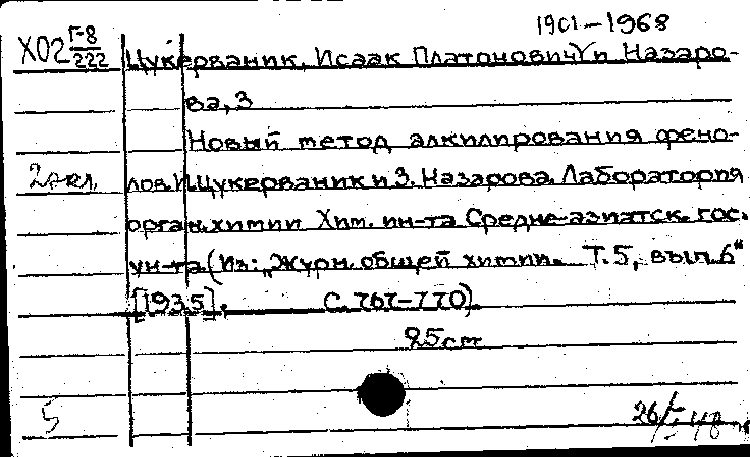 1901-1968
Х02 Г-8/222 Цукерваник, Исаак Платонович и Назаро-
ва, З
Новый метод алкилирования фено-
2 экз. лов. И. Цукерваник и З. Назарова. Лаборатория
орган. химии Хим. ин-та Средне-азиатск. гос.
ун-та (Из: „Журн. общей химии. Т. 5, вып. 6“
[1935]. С. 767-770).
25 cm
5 26/